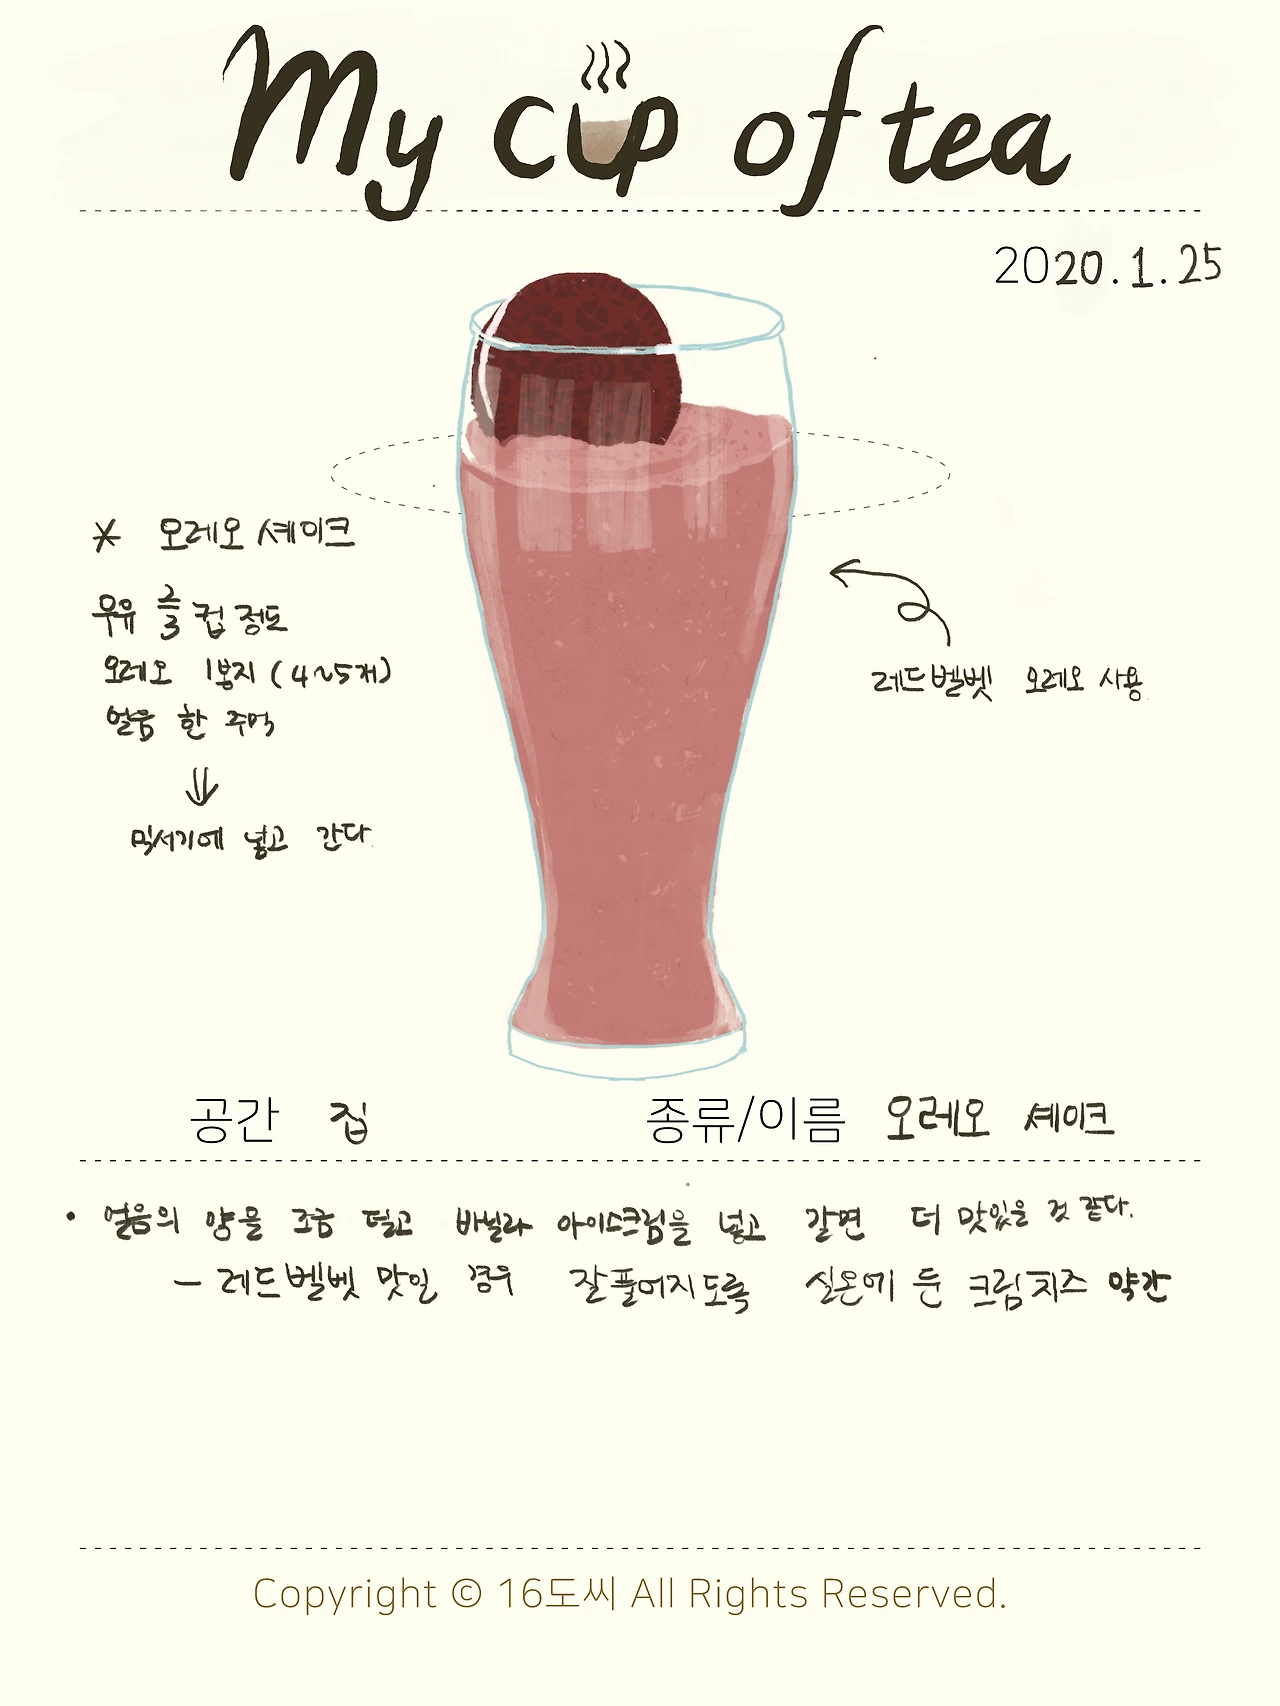 My cup of tea
2020.1.25
* 오레오 셰이크
우유 2/3 컵 정도
오레오 1봉지 (4~5개)
얼음 한 주먹
⇓
믹서기에 넣고 간다.
레드벨벳 오레오 사용.
공간 집
종류/이름 오레오 셰이크
• 얼음의 양을 조금 덜고 바닐라 아이스크림을 넣고 갈면 더 맛있을 것 같다.
- 레드벨벳 맛일 경우 잘 풀어지도록 실온에 둔 크림치즈 약간
Copyright © 16도씨 All Rights Reserved.